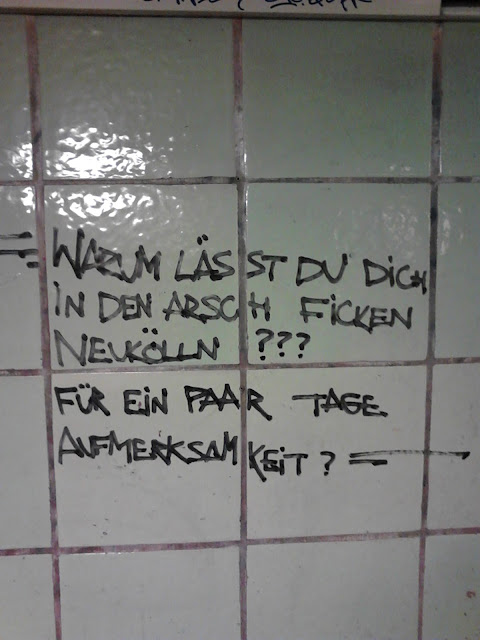 = WARUM LÄSST DU DICH
IN DEN ARSCH FICKEN
NEUKÖLLN ???
FÜR EIN PAAR TAGE
AUFMERKSAMKEIT ? =